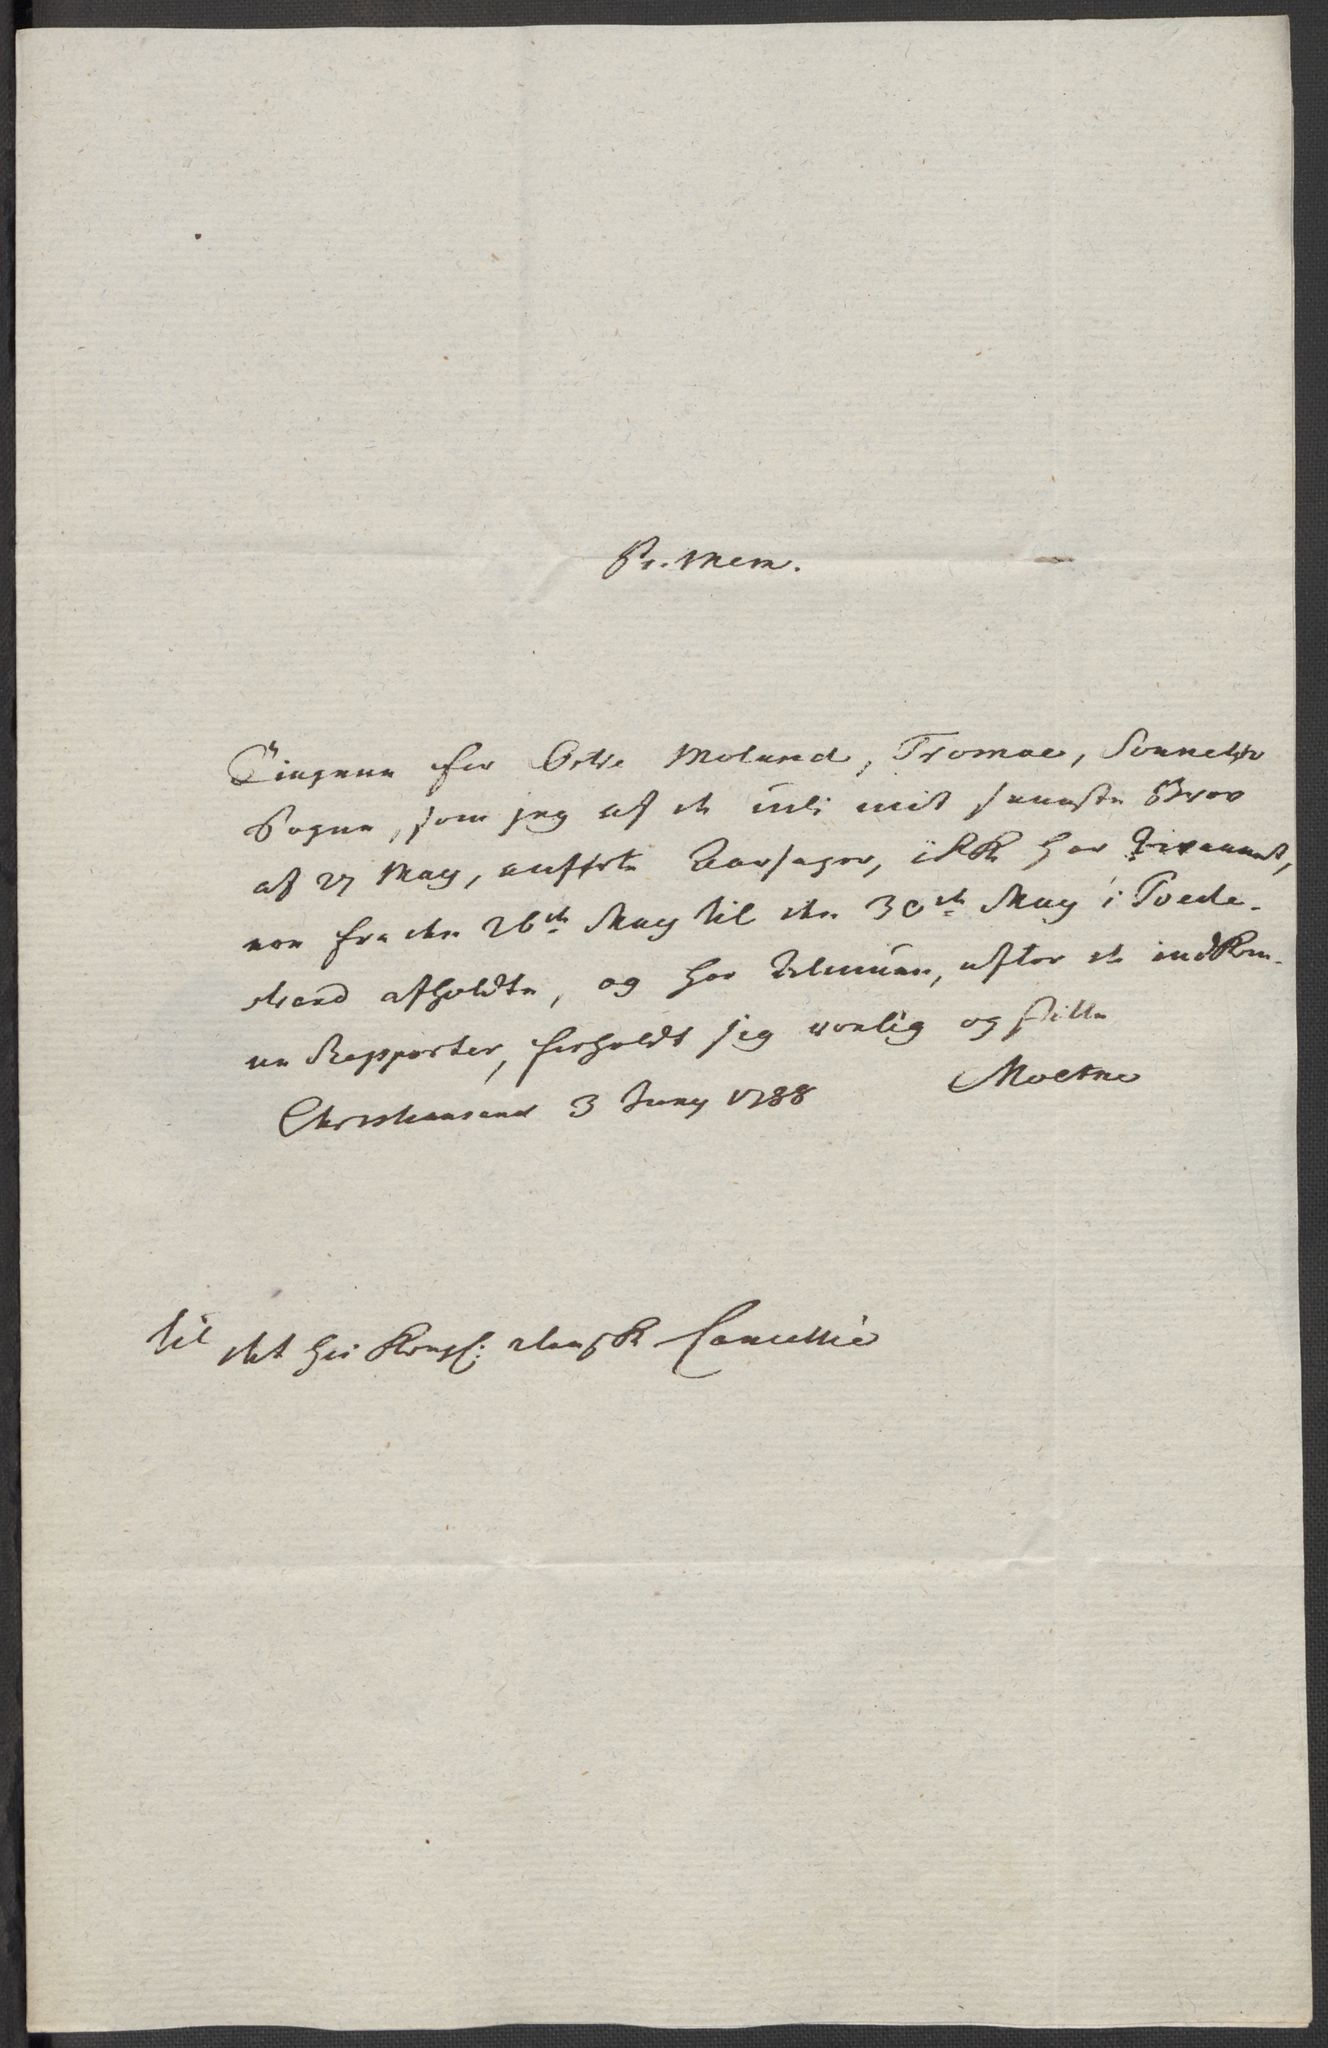 Pr. Mem.
Tingene for Østre Moland, Tromøe, Sonnelefs
Sogne, som jeg af de udi mit seneste Brev
af 27 May, anførte Aarsager, ikke har bivaanet,
ere fra den 26de May til den 30te May i Tvede-
strand afholdte, og har Almuen, efter de indkom-
ne Rapporter, forholdt sig roelig og stille
Christiansand 3 Juny 1788 Moltke
til det høi Kongl: danske Cancellie